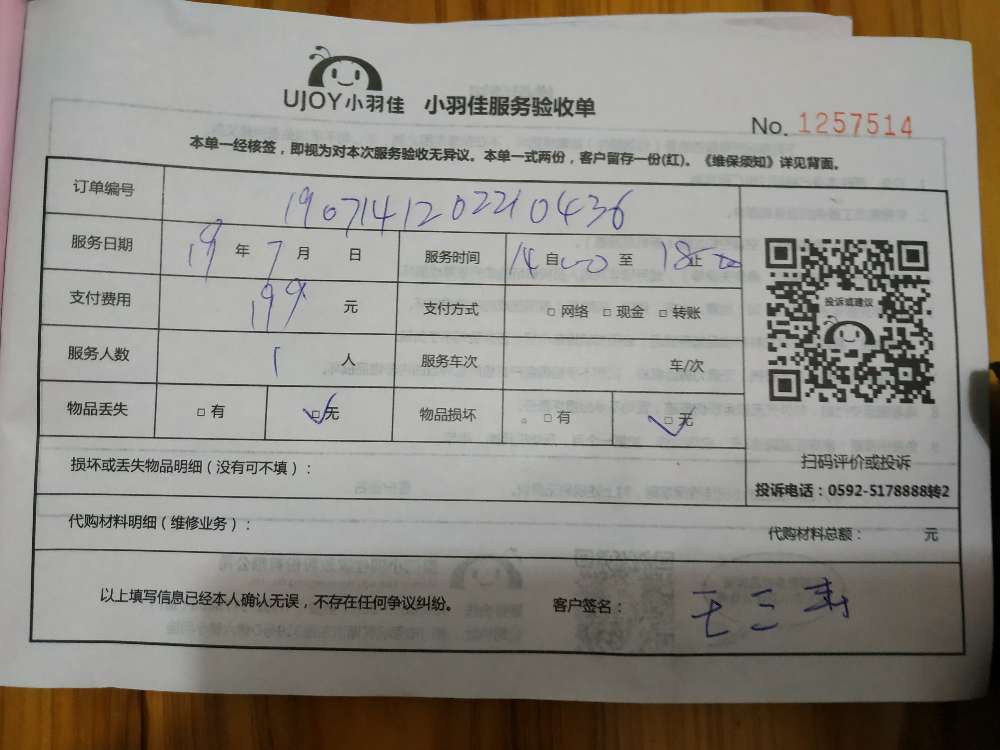 UJOY小羽佳 小羽佳服务验收单
No. 1257514
本单一经核签，即视为对本次服务验收无异议。本单一式两份，客户留存一份(红)。《维保须知》详见背面。
订单编号 1907141202210436
服务日期 19年7月 日 服务时间 14自00至18止
支付费用 199 元 支付方式 □网络 □现金 □转账
服务人数 1 人 服务车次 车/次
物品丢失 □有 □无 物品损坏 □有 □无
投诉或建议
扫码评价或投诉
投诉电话：0592-5178888转2
损坏或丢失物品明细（没有可不填）：
代购材料明细（维修业务）： 代购材料总额： 元
以上填写信息已经本人确认无误，不存在任何争议纠纷。 客户签名：